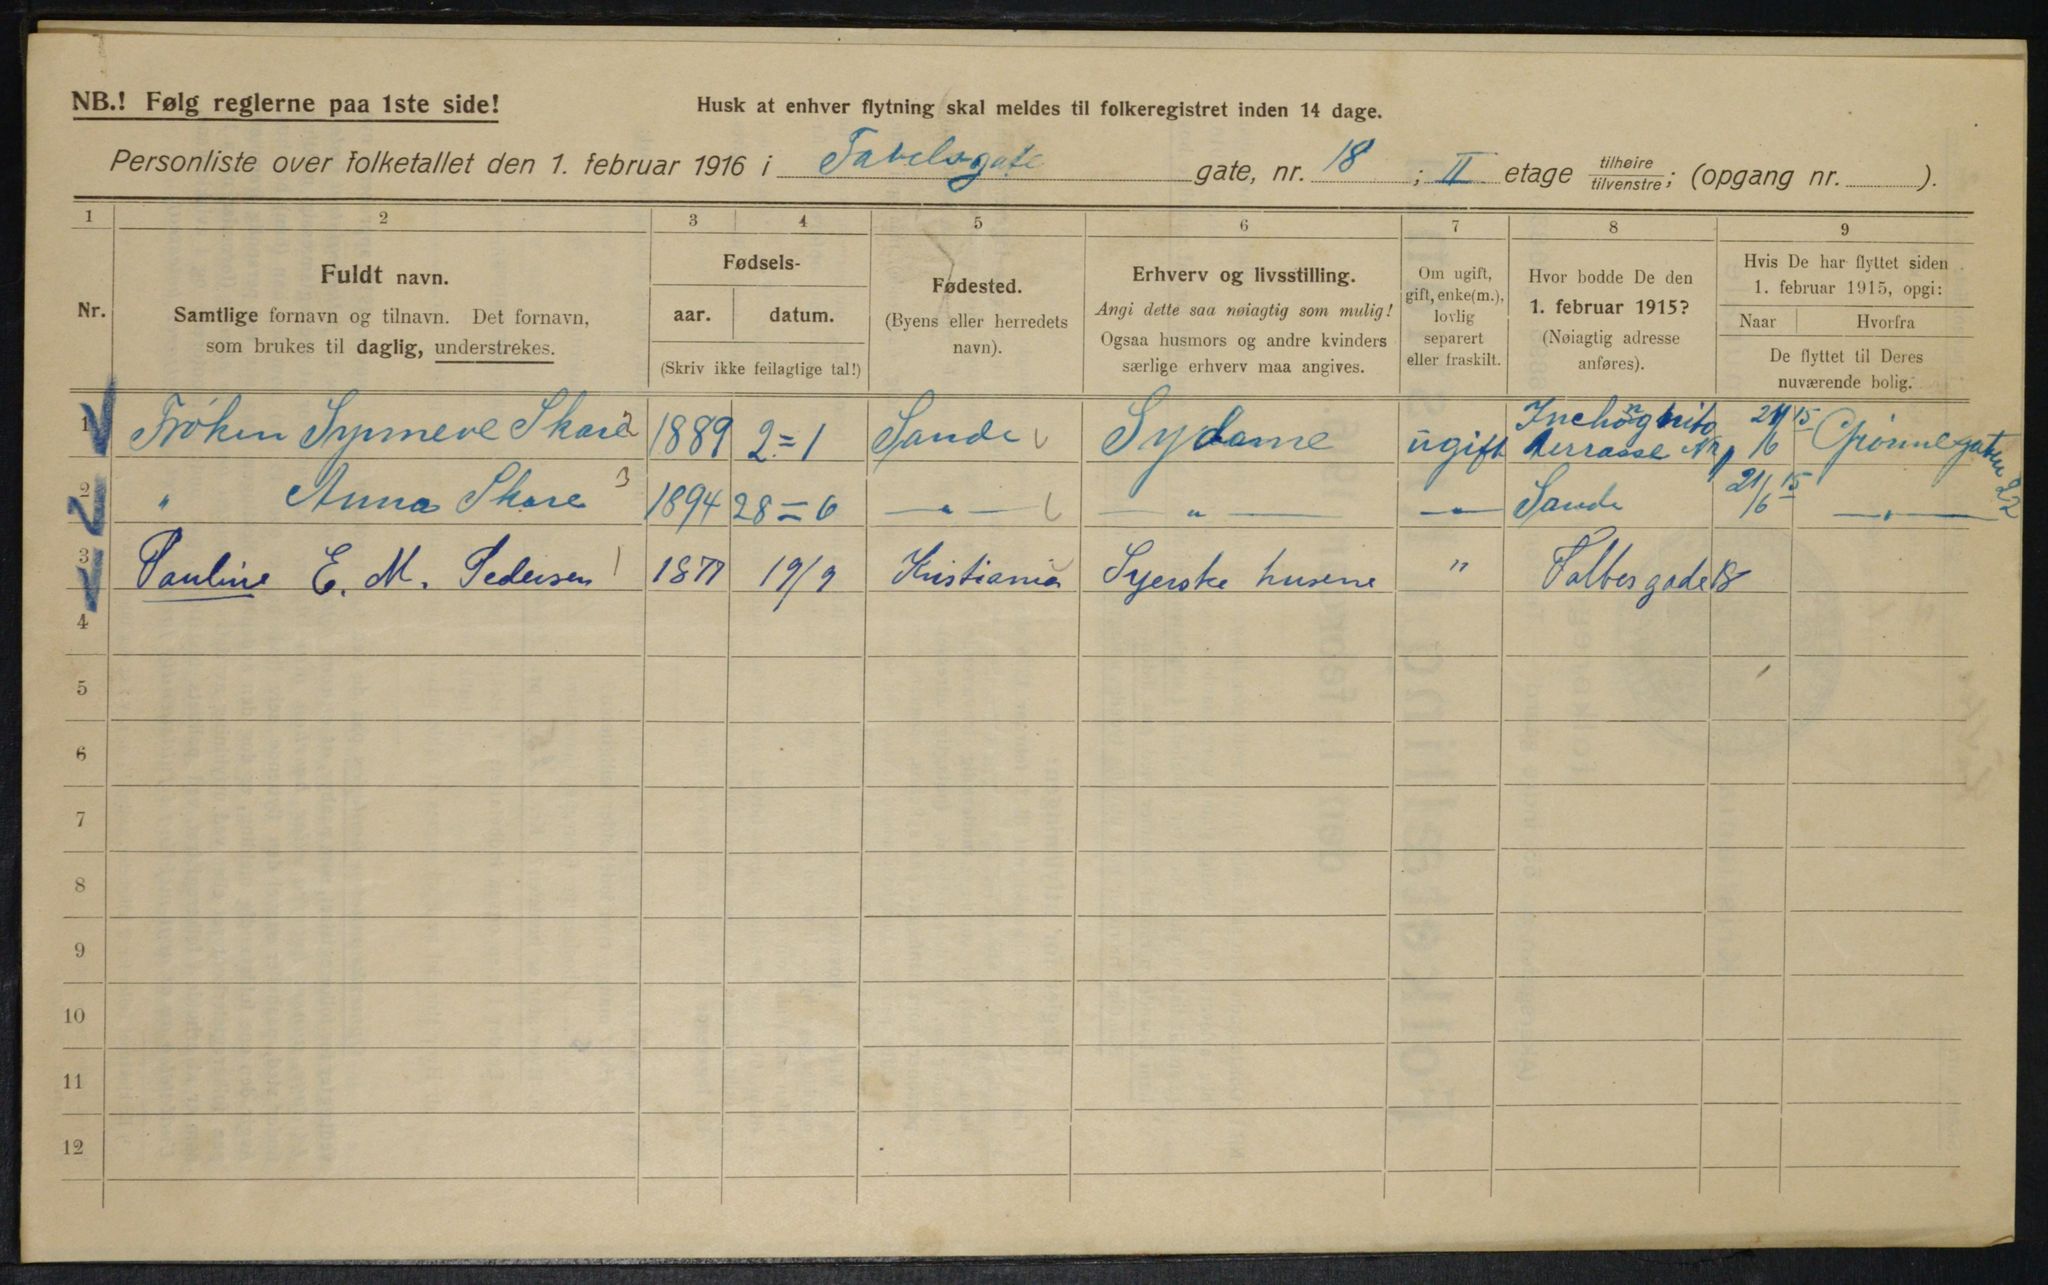 NB.! Følg reglerne paa 1ste side!
Husk at enhver flytning skal meldes til folkeregistret inden 14 dage.
Personliste over folketallet den 1. februar 1916 i Favelsgate gate, nr. 18 ; II etage tilhøire/tilvenstre; (opgang nr. ).
1 2 3 4 5 6 7 8 9
Nr.
Fuldt navn.
Samtlige fornavn og tilnavn. Det fornavn,
som brukes til daglig, understrekes.
Fødsels-
aar. datum.
(Skriv ikke feilagtige tal!)
Fødested.
(Byens eller herredets
navn).
Erhverv og livsstilling.
Angi dette saa nøiagtig som mulig!
Ogsaa husmors og andre kvinders
særlige erhverv maa angives.
Om ugift,
gift, enke(m.),
lovlig
separert
eller fraskilt.
Hvor bodde De den
1. februar 1915?
(Nøiagtig adresse
anføres).
Hvis De har flyttet siden
1. februar 1915, opgi:
Naar Hvorfra
De flyttet til Deres
nuværende bolig.
1 Frøken Synneve Skare 2 1889 2=1 Sande Sydame ugift terrasse 21/6 15 Grønnegaten 22
2 " Anna Skare 3 1894 28=6 — " — — " — — " — Sande 21/6 15 — " —
3 Pauline E. M. Pedersen 1 1877 19/9 Kristiania Syerske husene " Falbesgade 18
4
5
6
7
8
9
10
11
12